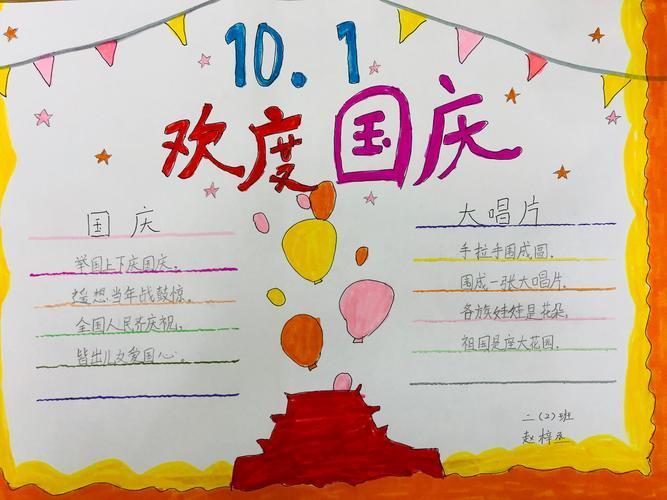 10.1
欢度国庆
国庆
举国上下庆国庆。
遥想当年战鼓惊。
全国人民齐庆祝。
皆出儿女爱国心。
大唱片
手拉手围成圆。
围成一张大唱片。
各族娃娃是花朵。
祖国是座大花园。
二(2)班
赵梓